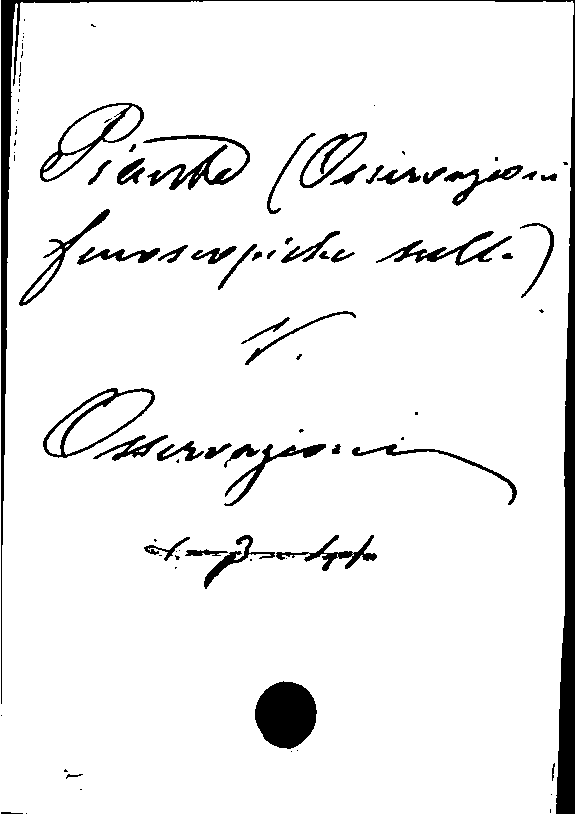 Piante (Osservazioni
fenoscopiche sulle)
V.
Osservazioni